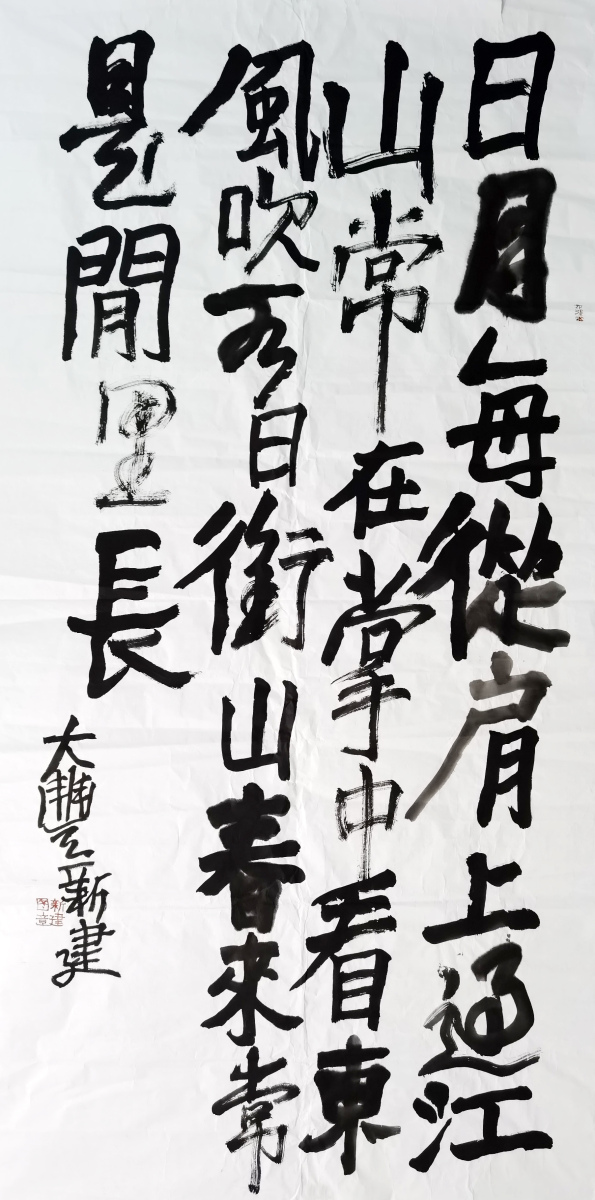 日月每從肩上過江
山常在掌中看東
風吹日銜山春來常
是閒里長
大新建
新建